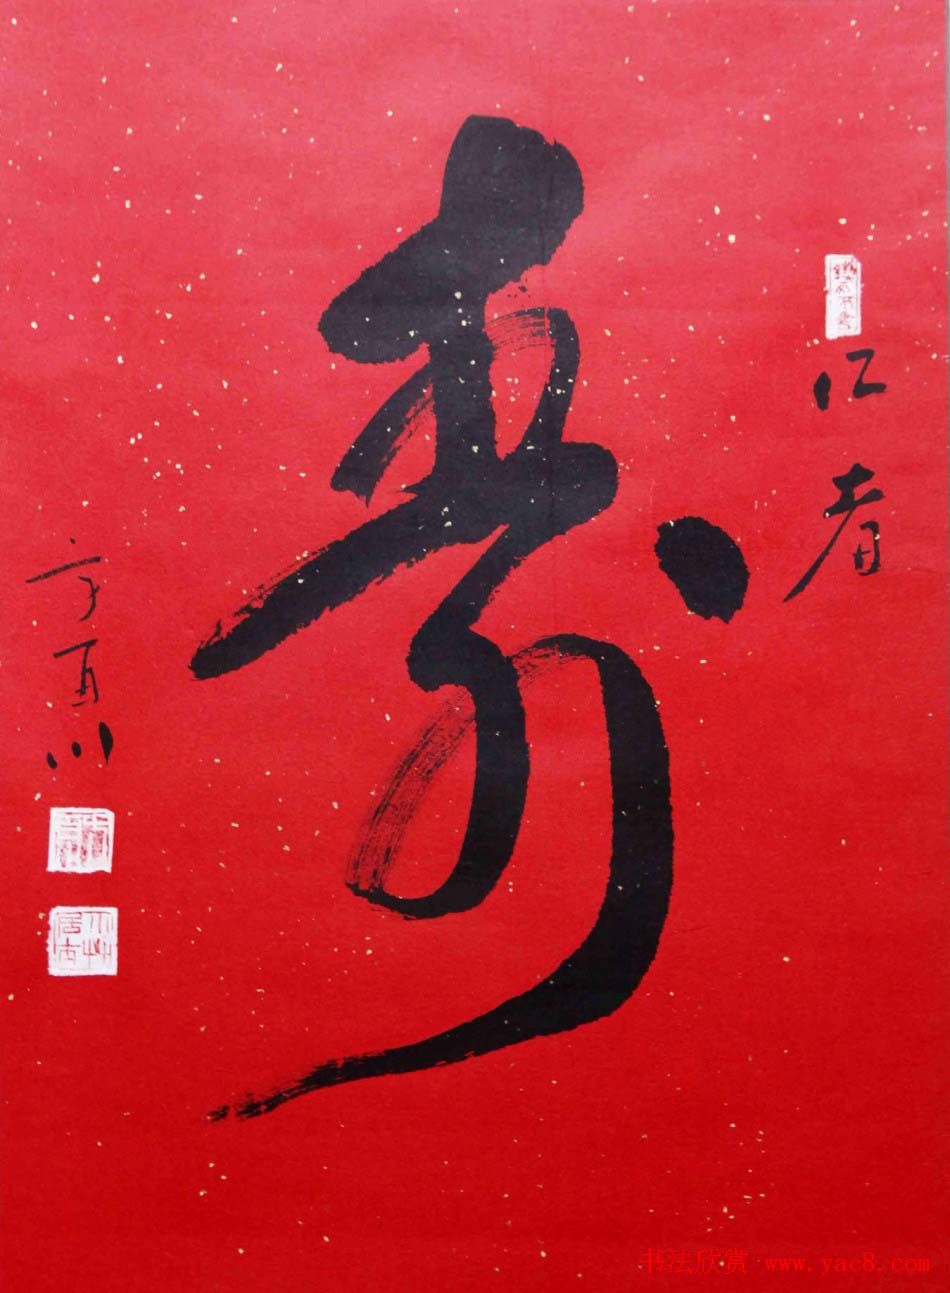 仁者
寿
百川
书法欣赏·www.yac8.com